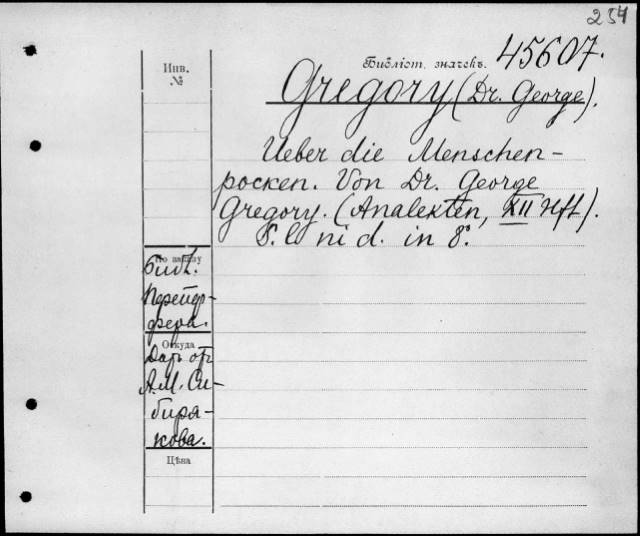 254
Инв.
№
Библіот. значекъ. 45607.
Gregory (Dr. George).
Ueber die Menschen-
pocken. Von Dr. George
Gregory. (Analekten, XII Hft).
S. l. ni d. in 8º.
По заказу
Библ.
Перейд-
фера.
Откуда
Даръ отъ
А.М. Си-
биря-
кова.
Цѣна